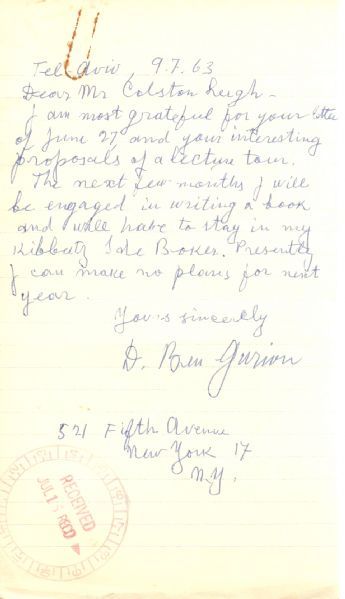 Tel Aviv, 9.7.63
Dear Mr Colston Leigh -
I am most grateful for your letter
of June 27, and your interesting
proposals of a lecture tour.
The next few months I will
be engaged in writing a book
and will have to stay in my
Kibbutz Sde Boker. Presently
I can make no plans for next
year.
Yours sincerely
D. Ben Gurion
521 Fifth Avenue
New York 17
N.Y.
RECEIVED
JUL 15 REC'D